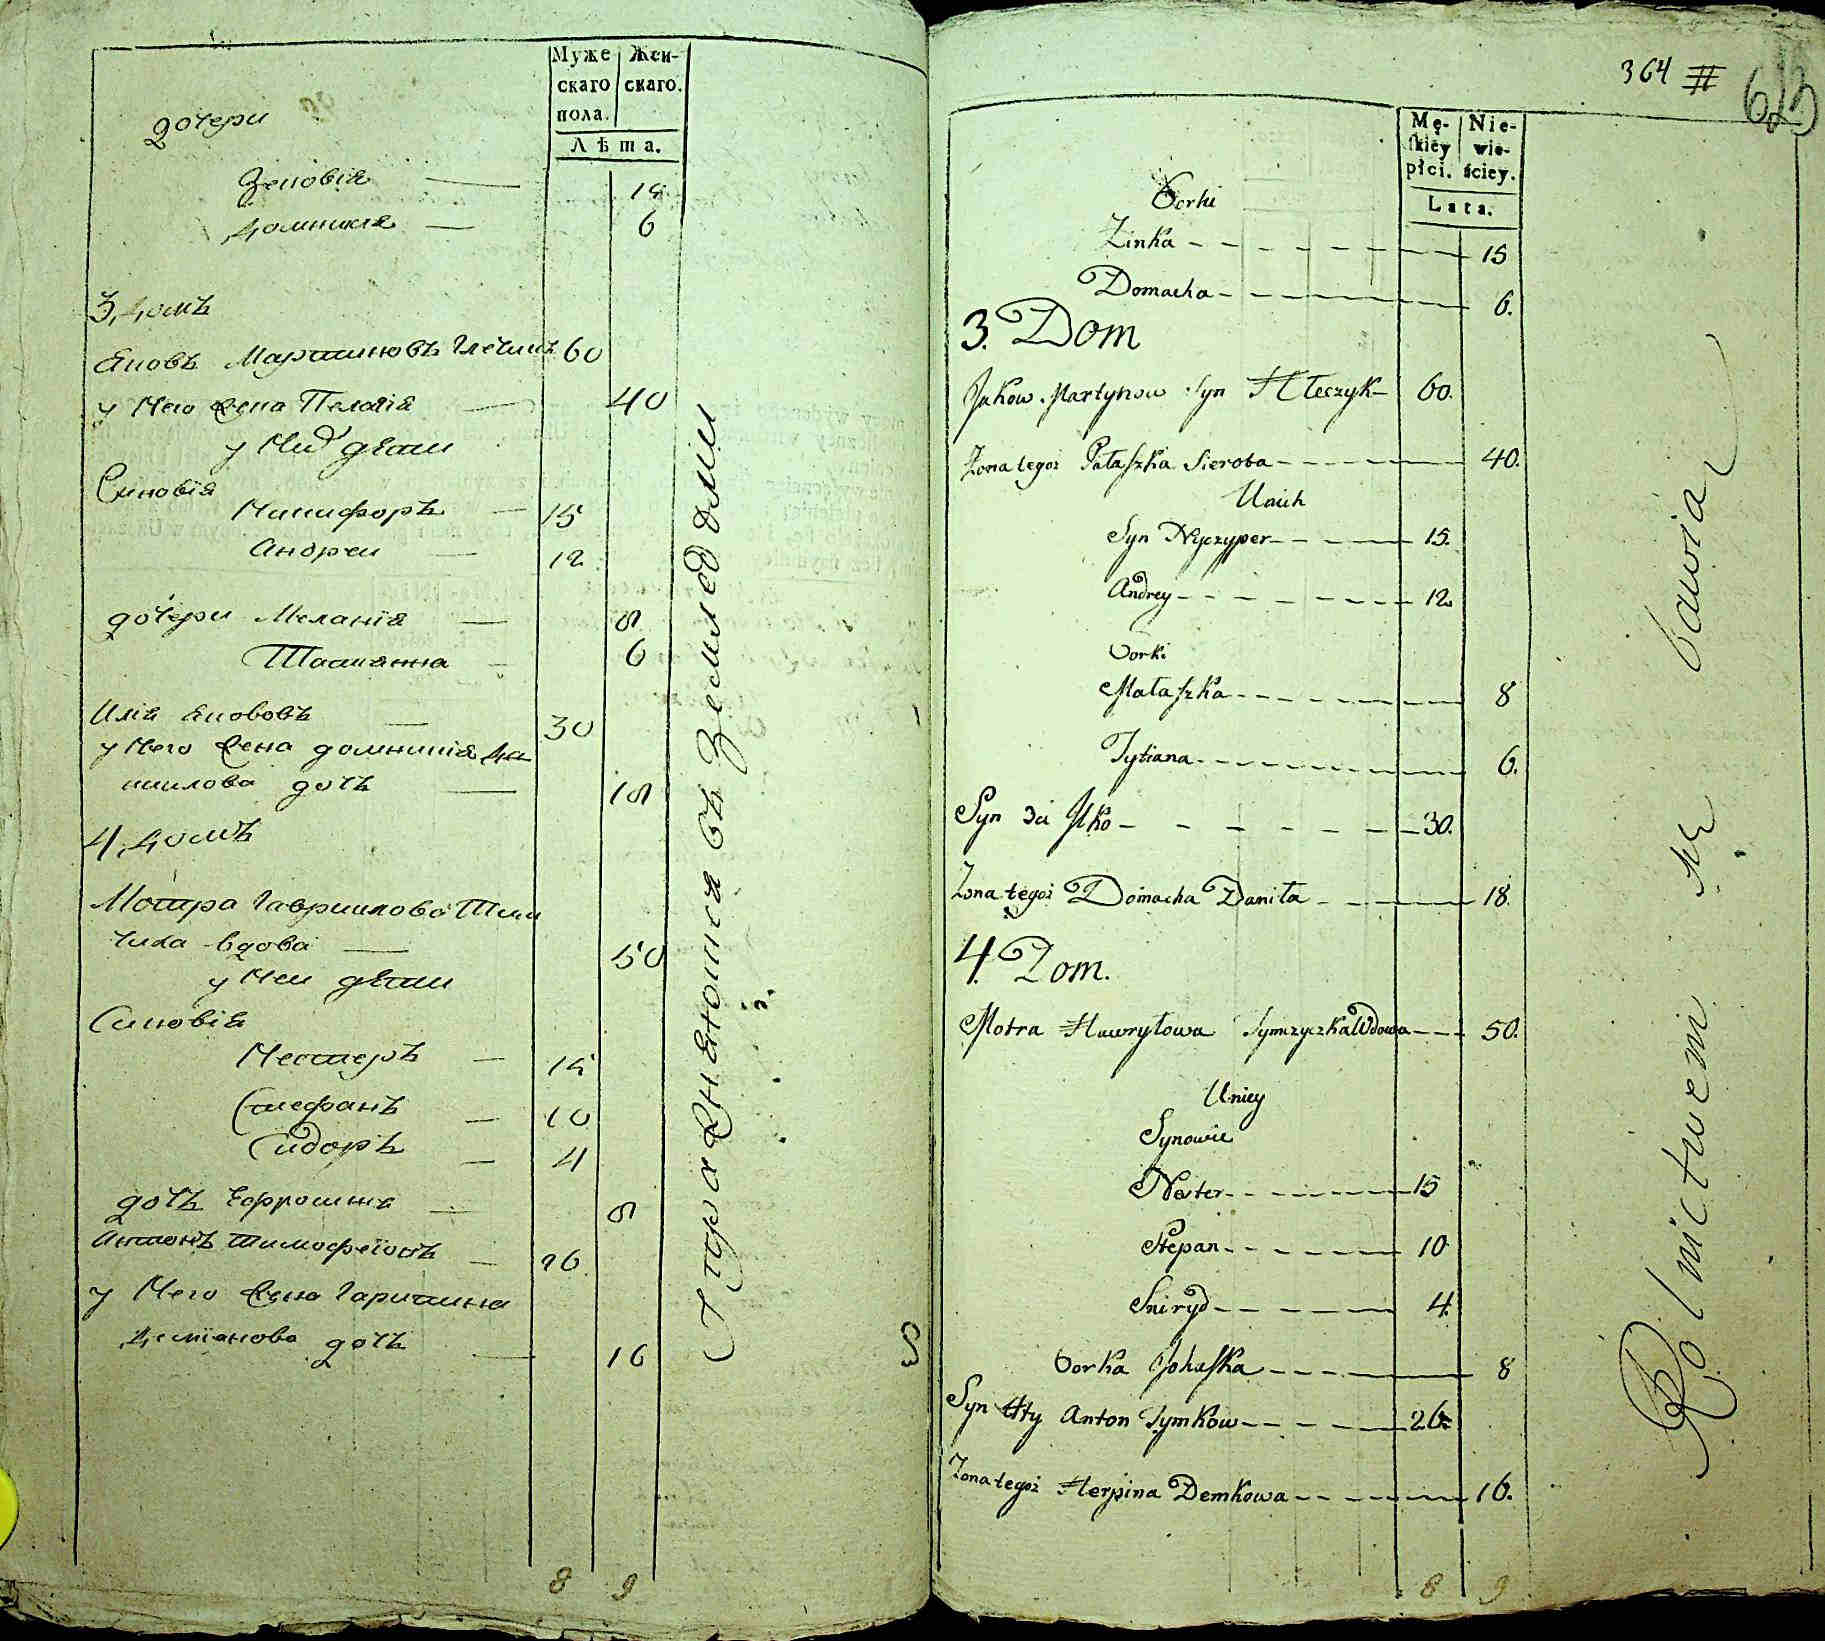 Муже Жен-
скаго скаго.
пола.
Лѣта.
дочери
Зеновія 15
Домникия 6
3 Домъ
Яковъ Мартиновъ Глечикъ 60
у Него Жена Пелагія 40
у Них дѣти
Синовія
Никифоръ 15
Андреи 12
дочери Меланія 8
Татиянна 6
Илія Якововъ 30
у Него Жена домникія Да
ниилова дочъ 18
4 Домъ
Мотра Гавриилова Тим
чиха вдова 50
у Неи дѣти
Синовія
Нестеръ 15
Стефанъ 10
Сидоръ 4
дочъ Ефросиния 8
Антонъ Тимофеїовъ 26
у Него Жена Гарпина
Демїанова дочъ 16
8 9
Упражняются въ Земледелии
364 #
Mę- Nie-
ſkiey wie-
płci. ściey.
Lata.
Corki
Zinka 15
Domacha 6.
3. Dom
Jakow Martynow Syn Hleczyk 60.
Zona tegoż Pałaſzka Sierota 40.
Unich
Syn Nyczyper 15.
Andrey 12
Corki
Małaſzka 8
Tytiana 6.
Syn 3ci Ilko 30.
Zona tegoż Domacha Daniła 18.
4. Dom.
Motra Hawryłowa Tymczyczka Wdowa 50.
Uniey
Synowie
Nester 15
Stepan 10
Sniryd 4.
Corka Johaſka 8
Syn 4ty Anton Tymkow 26.
Zona tegoż Herpina Demkowa 16.
8 9
Rolnictwem się bawią